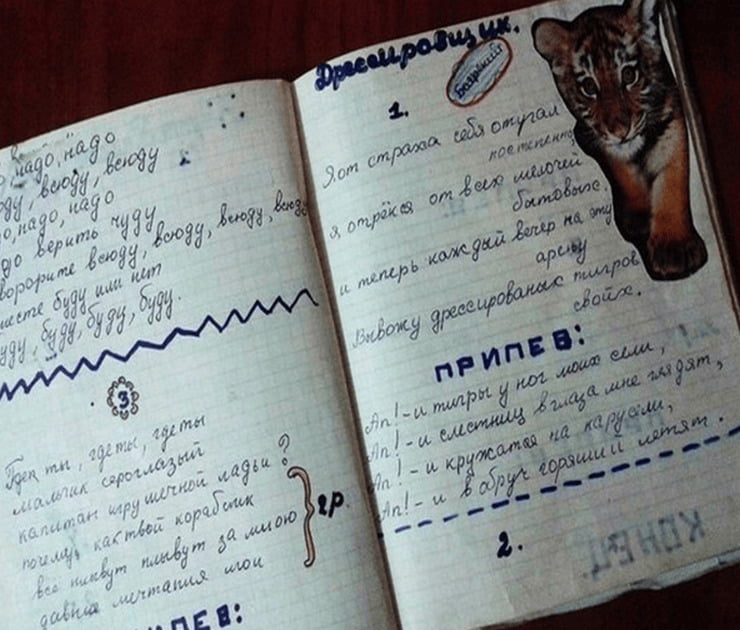 надо, надо
всюду, всюду
надо, надо
верить чуду
всюду, всюду, всюду, всюду
буду или нет
буду, буду, буду.
3
где ты, где ты
мальчик сероглазый
капитан игрушечной ладьи ?
почему, как твой кораблик
всё плывут плывут за мною
давние мечтания мои
2р.
Дрессировщик.
Боярский
1.
Я от страха себя отугал
постепенно
я отрёкся от всех мелочей
бытовых.
и теперь каждый вечер на эту
арену
Вывожу дрессированых тигров
своих.
ПРИПЕВ:
Ап! - и тигры у ног моих сели,
Ап! - и с лестниц в глаза мне глядят,
Ап! - и кружатся на карусели,
Ап! - и в обруч горящий летят.
2.
КОНЕЦ